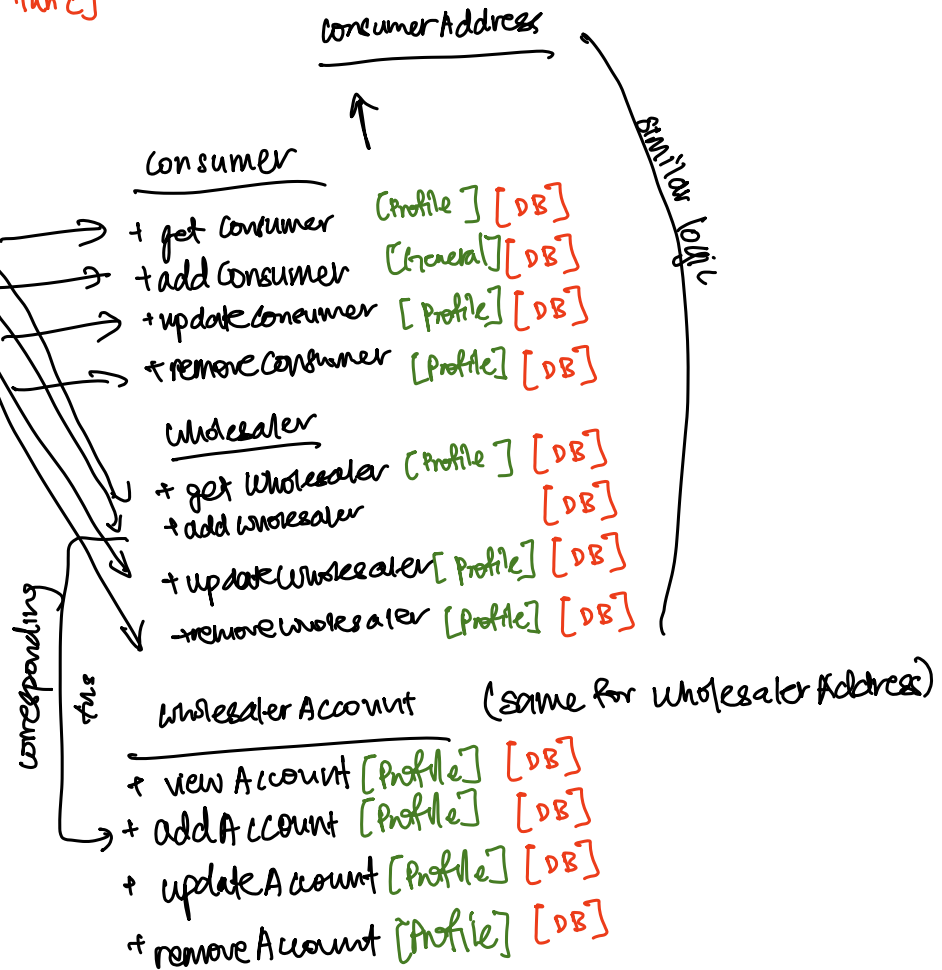 consumerAddress
similar logic
consumer
+ get Consumer [Profile] [DB]
+ add Consumer [General] [DB]
+ update Consumer [Profile] [DB]
+ remove Consumer [Profile] [DB]
Wholesaler
+ get Wholesaler [Profile] [DB]
+ add Wholesaler [DB]
+ update Wholesaler [Profile] [DB]
+ remove Wholesaler [Profile] [DB]
corresponding
fns
Wholesaler Account (same for Wholesaler Address)
+ view Account [Profile] [DB]
+ add Account [Profile] [DB]
+ update Account [Profile] [DB]
+ remove Account [Profile] [DB]